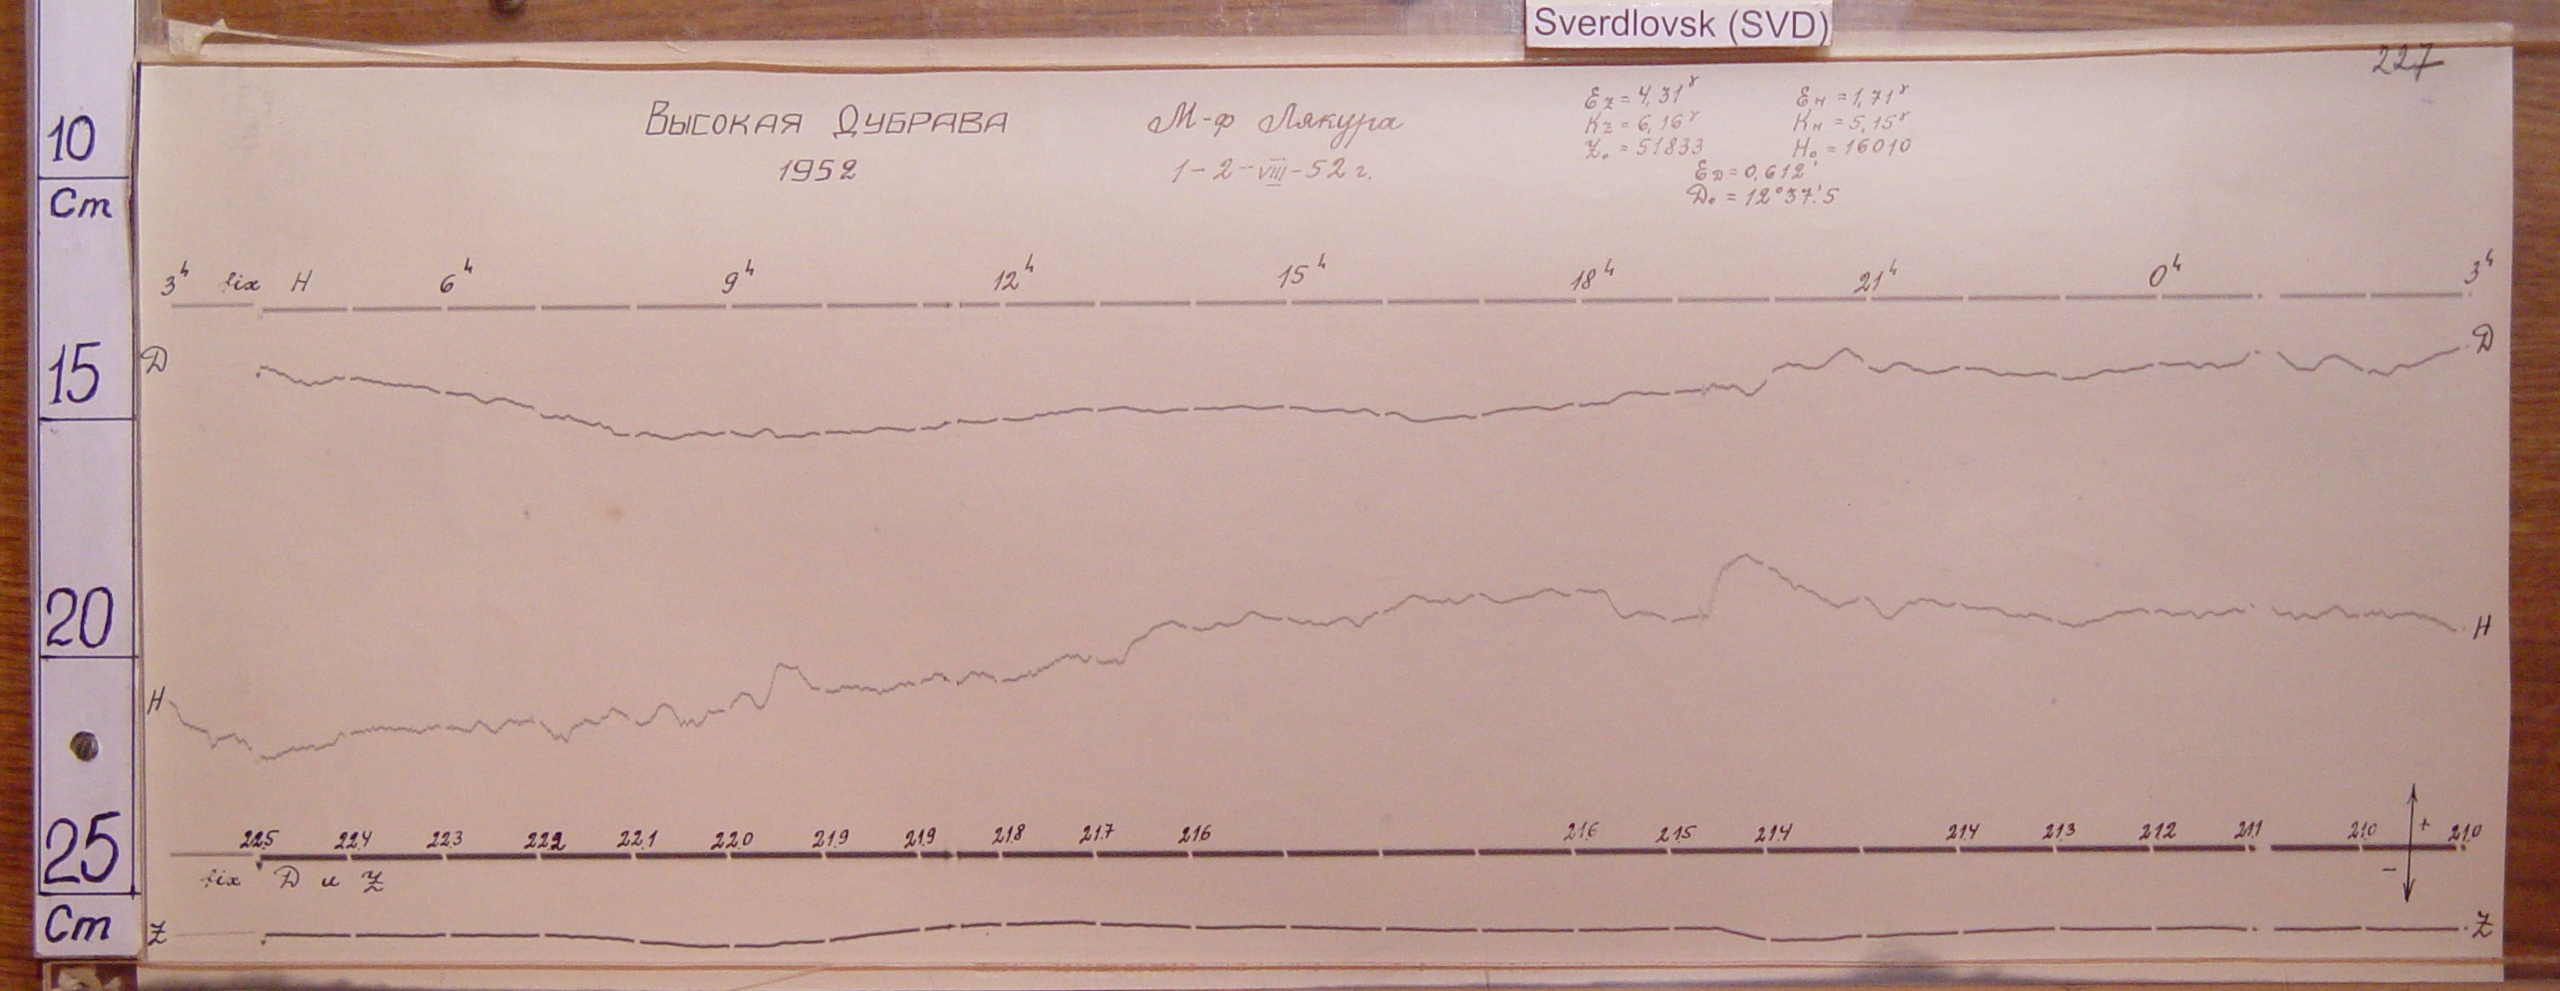 Sverdlovsk (SVD)
227
10
Cm
15
20
25
Cm
ВЫСОКАЯ ДУБРАВА
1952
М-ф Лякура
1-2-VIII-52 г.
Ez = 4,31γ
Kz = 6,16γ
Z₀ = 51833
Eн = 1,71γ
Kн = 5,15γ
H₀ = 16010
E𝒟 = 0,612'
D₀ = 12°37'.5
3h fix H 6h 9h 12h 15h 18h 21h 0h 3h
D D
H H
22.5 22.4 22.3 22.2 22.1 22.0 21.9 21.9 21.8 21.7 21.6 21.6 21.5 21.4 21.4 21.3 21.2 21.1 21.0 21.0
+
−
fix D и Z
Z Z